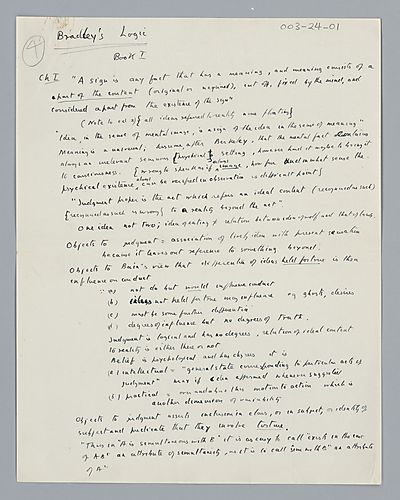 003-24-01
4
Bradley's Logic
Book I
Ch I "A sign is any fact that has a meaning, and meaning consists of a
a part of the content (original or acquired), cut off, fixed by the mind, and
considered apart from the existence of the sign"
(Note to ed of all ideas referred to reality none floating
"Idea, in the sense of mental image, is a sign of the idea in the sense of meaning"
Meaning is a universal; Hume, after Berkeley, that the mental fact contains
always an irrelevant sensuous setting, however hard it maybe to bring it
to consciousness. is wrong to speak as if a image, how far some the
psychical existence, can be verified in observation is different point
"Judgment proper is the act which refers an ideal content (recognised as such)
to a reality beyond the act".
One idea not two; idea of relation between idea of wolf and that of lamb.
Objects to judgment = association of lively idea with present sensation
because it leaves out reference to something beyond.
Objects to Bain's view that differentia of ideas held for true is their
influence on conduct
(a) not do but would influence conduct
(b) ideas not held for true may influence eg ghosts, desires
(c) must be some further differentia
(d) degrees of influence but no degrees of truth.
Judgment is logical and has no degrees, relation of ideal content
to reality is either there or not
Belief is psychological and has degrees it is
(a) intellectual = "general state corresponding to particular acts of
judgment" idea affirmed whenever suggested
(b) practical = this motion to action which is
another dimension of variability
Objects to judgment asserts inclusion in class, or in subject, or identity of
subject and predicate that they involve torture.
"Thus in "A is simultaneous with B" it is easy to call "exists in the case
of A B" an attribute of simultaneously, as it is to call "simr with B" an attribute
of A"